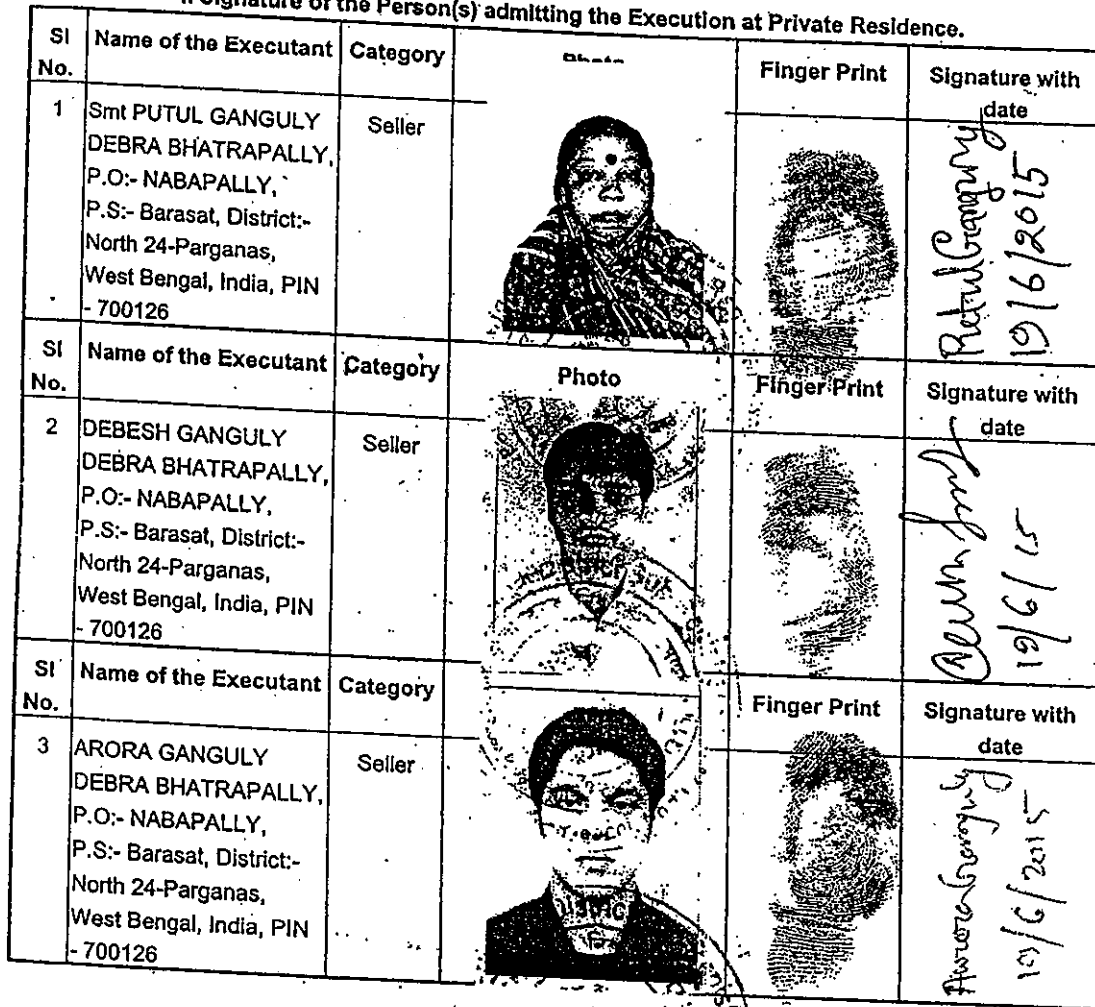 Signature of the Person(s) admitting the Execution at Private Residence.
Sl No. Name of the Executant Category Photo Finger Print Signature with date
1 Smt PUTUL GANGULY Seller
DEBRA BHATRAPALLY,
P.O:- NABAPALLY,
P.S:- Barasat, District:-
North 24-Parganas,
West Bengal, India, PIN
- 700126
Putul Ganguly
19/6/2015
Sl No. Name of the Executant Category Photo Finger Print Signature with date
2 DEBESH GANGULY Seller
DEBRA BHATRAPALLY,
P.O:- NABAPALLY,
P.S:- Barasat, District:-
North 24-Parganas,
West Bengal, India, PIN
- 700126
19/6/15
Sl No. Name of the Executant Category Finger Print Signature with date
3 ARORA GANGULY Seller
DEBRA BHATRAPALLY,
P.O:- NABAPALLY,
P.S:- Barasat, District:-
North 24-Parganas,
West Bengal, India, PIN
- 700126
19/6/2015